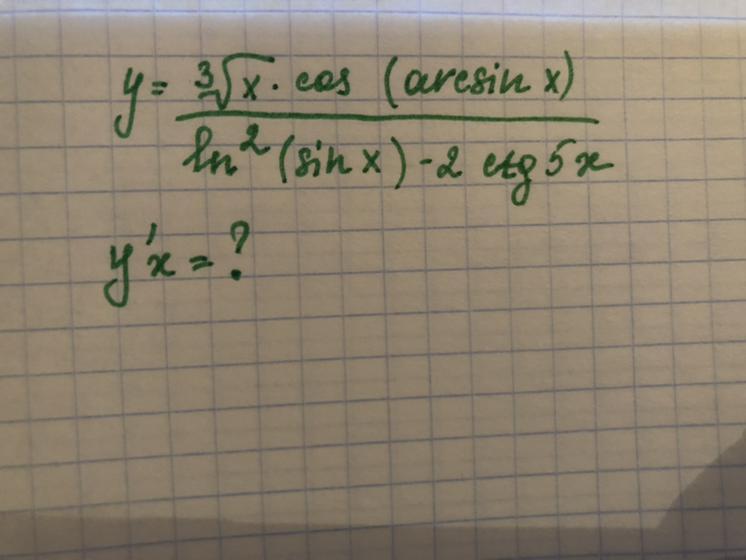 y = ∛x · cos (arcsin x)
ln² (sin x) - 2 ctg 5x
y'x = ?